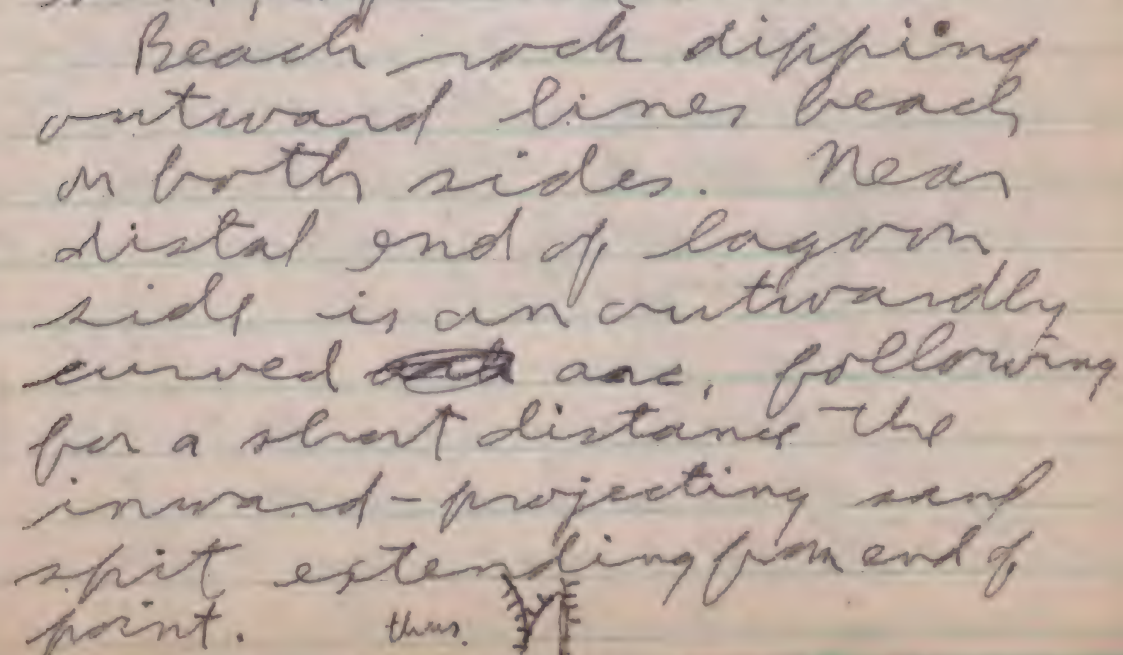 Beach rock dipping
outward lines beach
on both sides. Near
distal end of lagoon
side is an outwardly
curved arc, following
for a short distance the
inward-projecting sand
spit extending from end of
point. thus.